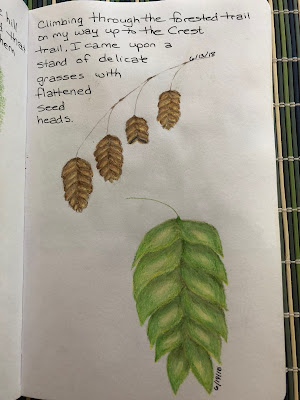 Climbing through the forested trail
on my way up to the Crest
trail, I came upon a
stand of delicate
grasses with
flattened
seed
heads.
6/13/18
6/19/18